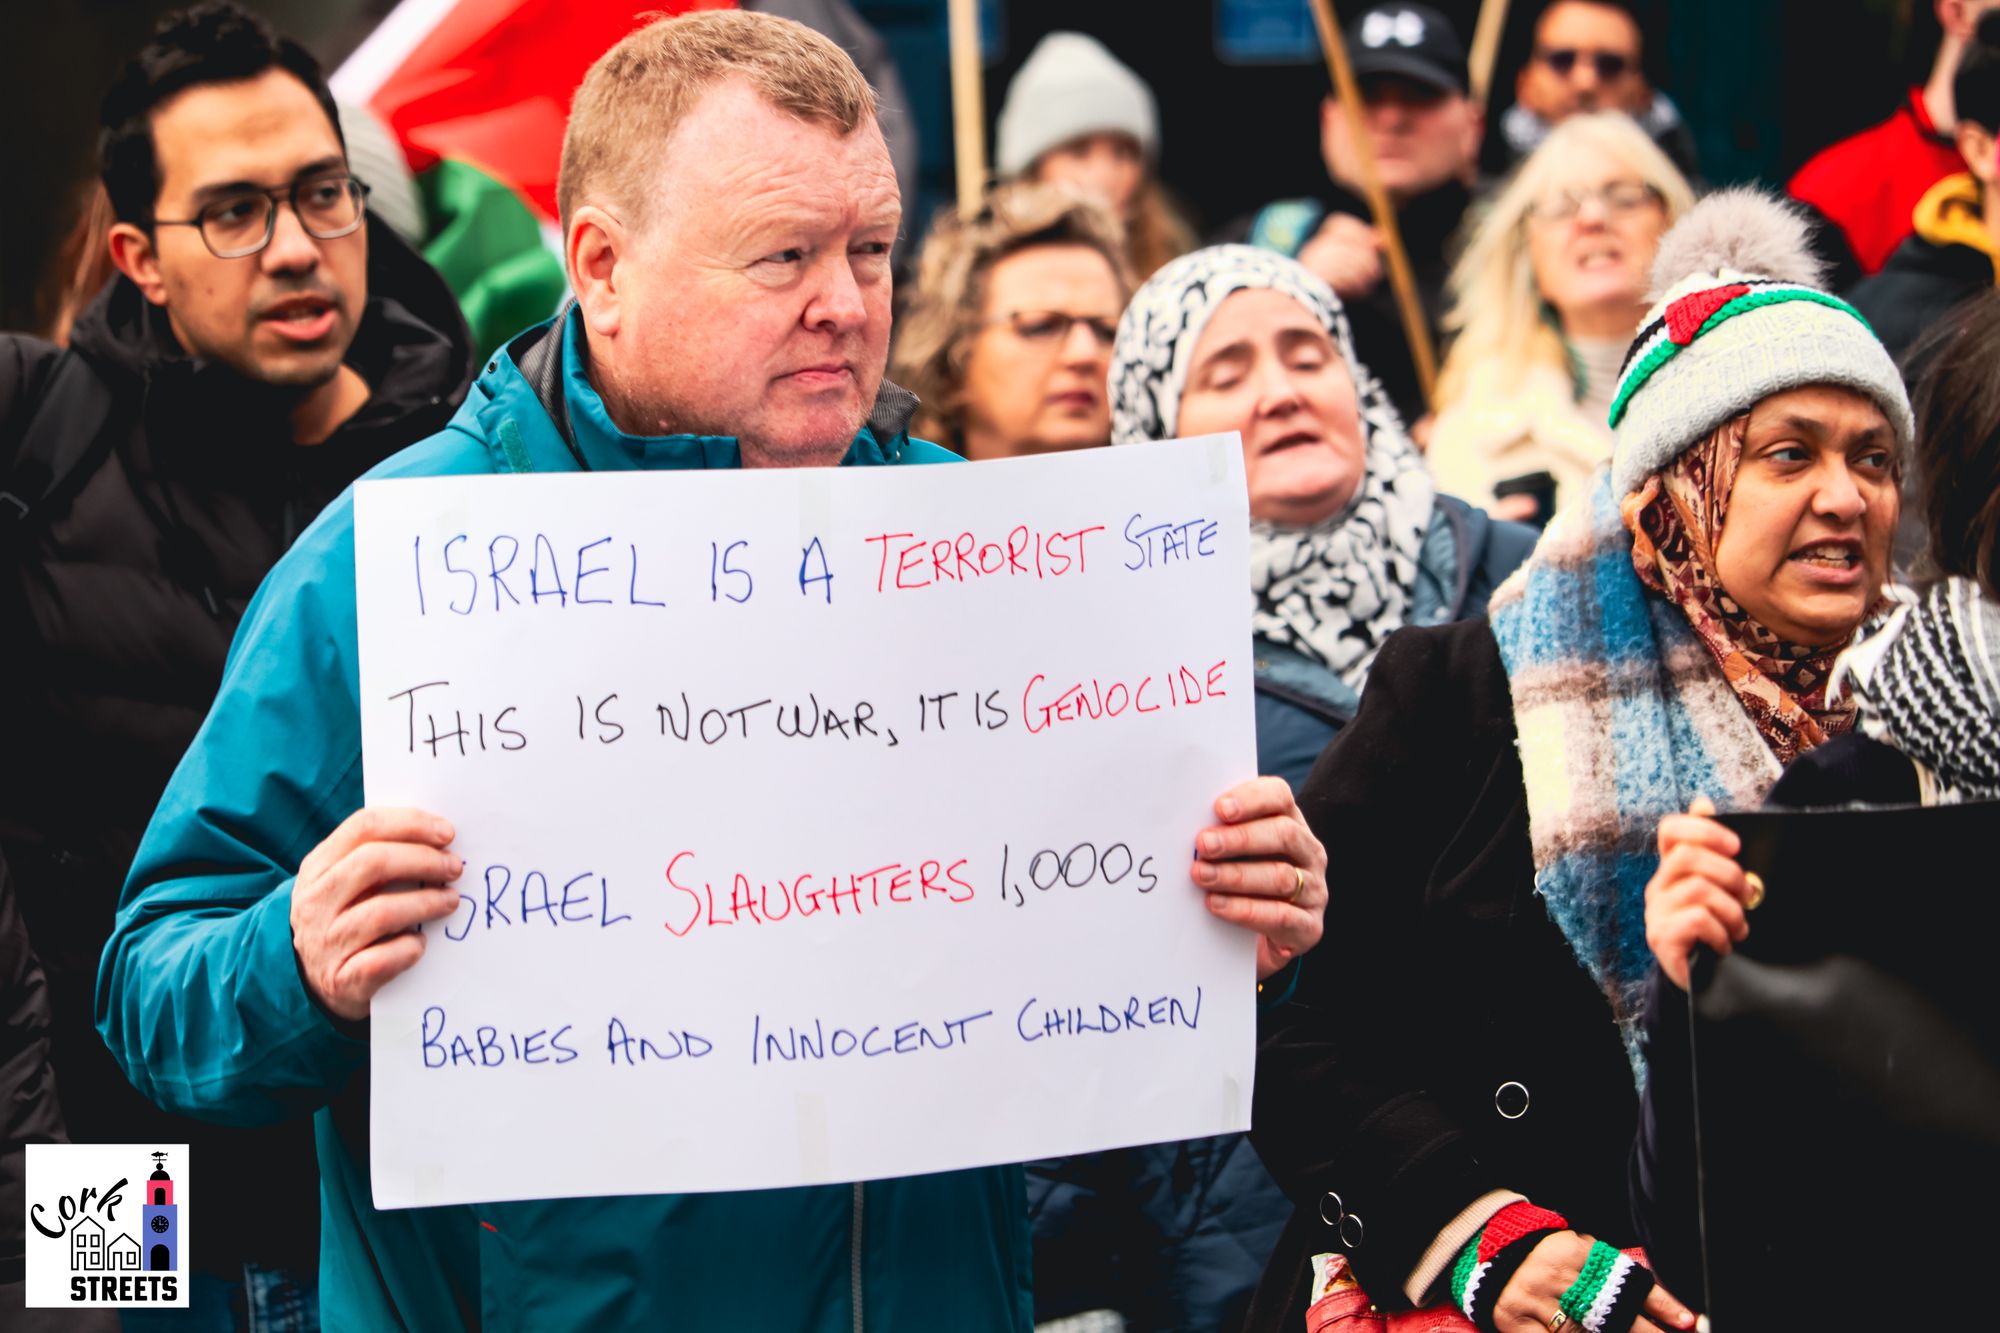 ISRAEL IS A TERRORIST STATE
THIS IS NOT WAR, IT IS GENOCIDE
ISRAEL SLAUGHTERS 1,000s
BABIES AND INNOCENT CHILDREN
Cork
STREETS